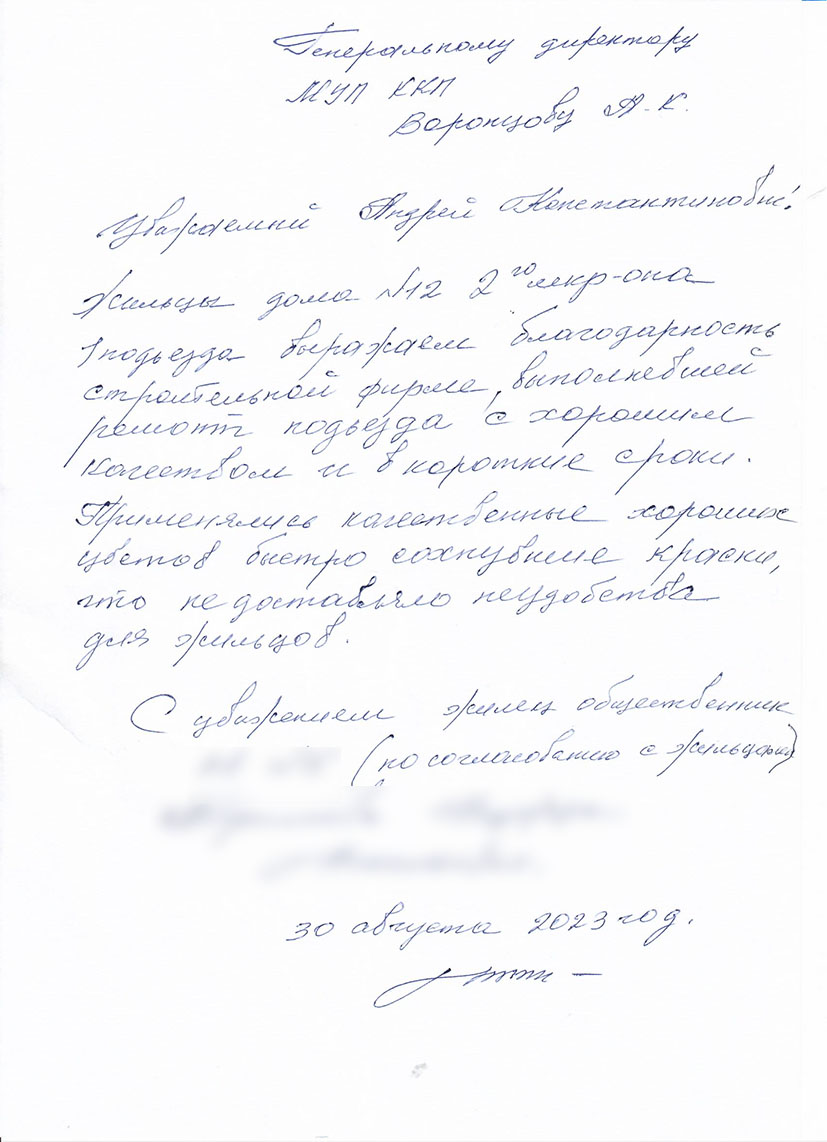 Генеральному директору
МУП ККП
Воронцову А.К.
Уважаемый Андрей Константинович!
Жильцы дома №12 2го мкр-она
1 подьезда выражаем благодарность
строительной фирме, выполневшей
ремонт подьезда с хорошим
качеством и в короткие сроки.
Применялись качественные хороших
цветов быстро сохнувшие краски,
что не доставляло неудобства
для жильцов.
С уважением жилец общественник
(по согласованию с жильцами)
30 августа 2023 год.